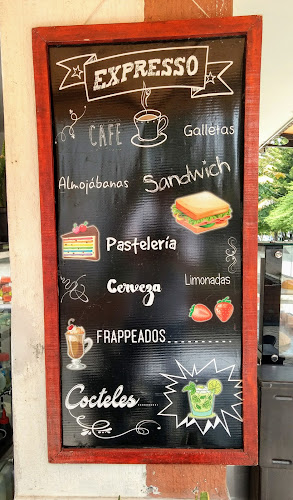 EXPRESSO
CAFE
Galletas
Almojábanas
Sandwich
Pastelería
Cerveza
Limonadas
FRAPPEADOS......
Cocteles........